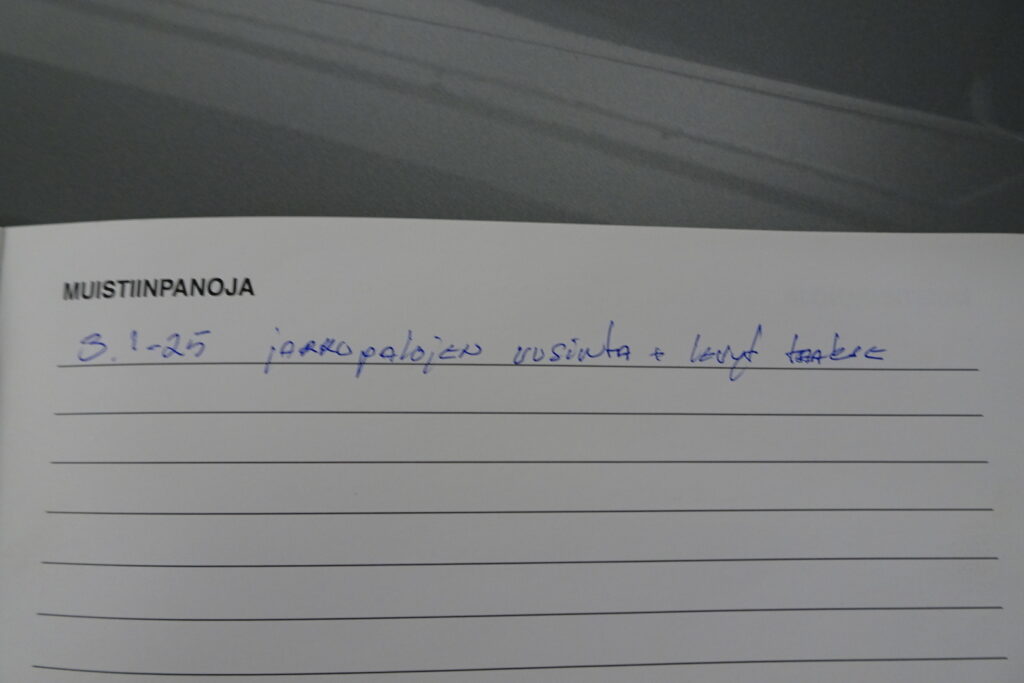 MUISTIINPANOJA
8.1-25 jarrupalojen uusinta + levyt taakse